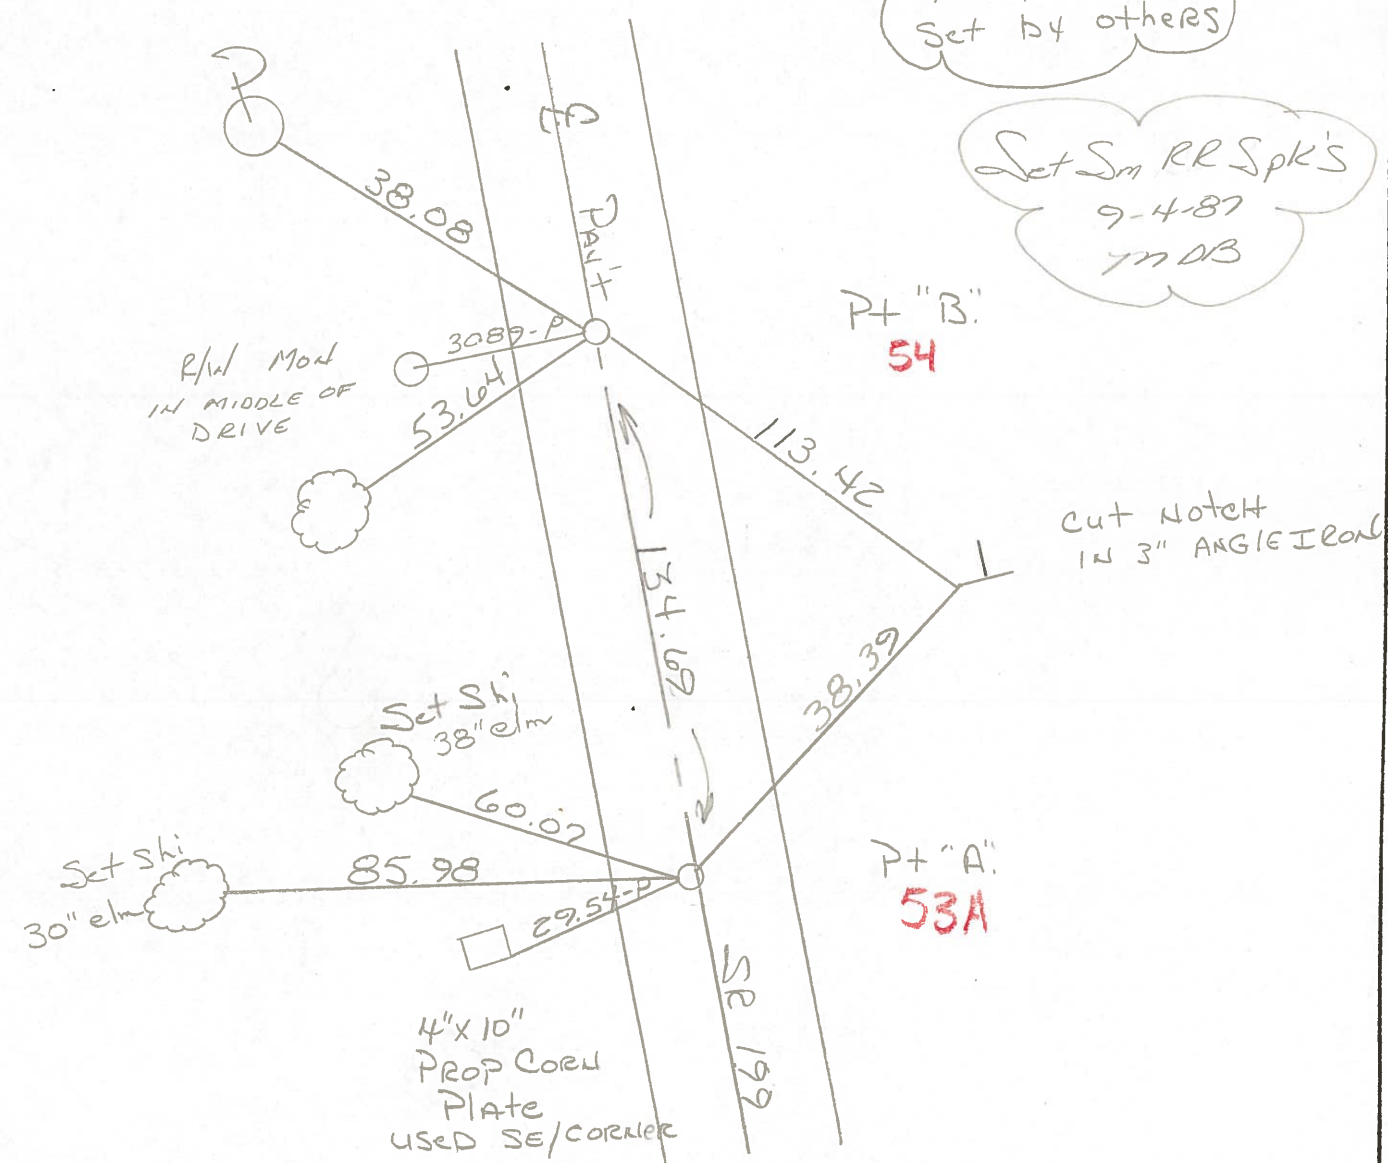 Set by others
Set Sm RR Spk's
9-4-87
MDB
P
38.08
℄ Pav't
Pt "B"
54
3089-P
R/W MON
IN MIDDLE OF
DRIVE
53.64
113.42
Cut Notch
IN 3" ANGLE IRON
134.69
38.39
Set Shi
38" elm
60.07
Set Shi
30" elm
85.98
Pt "A"
53A
29.54-P
SR 199
4" X 10"
PROP CORN
PLAte
USED SE/CORNER